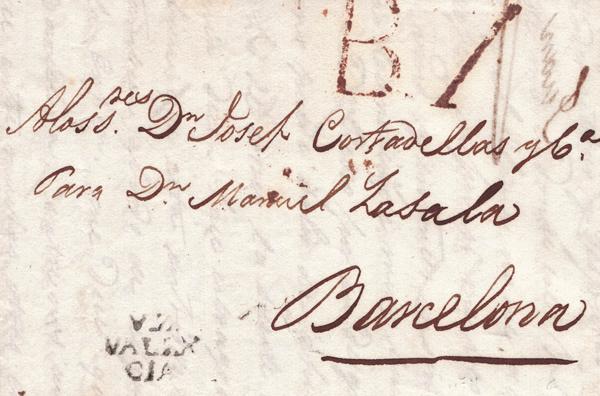 B. 1
A los S.res Dn Josef Cortadellas y Ca
Para Dn Manuel Lasala
Barcelona
VALEN
CIA